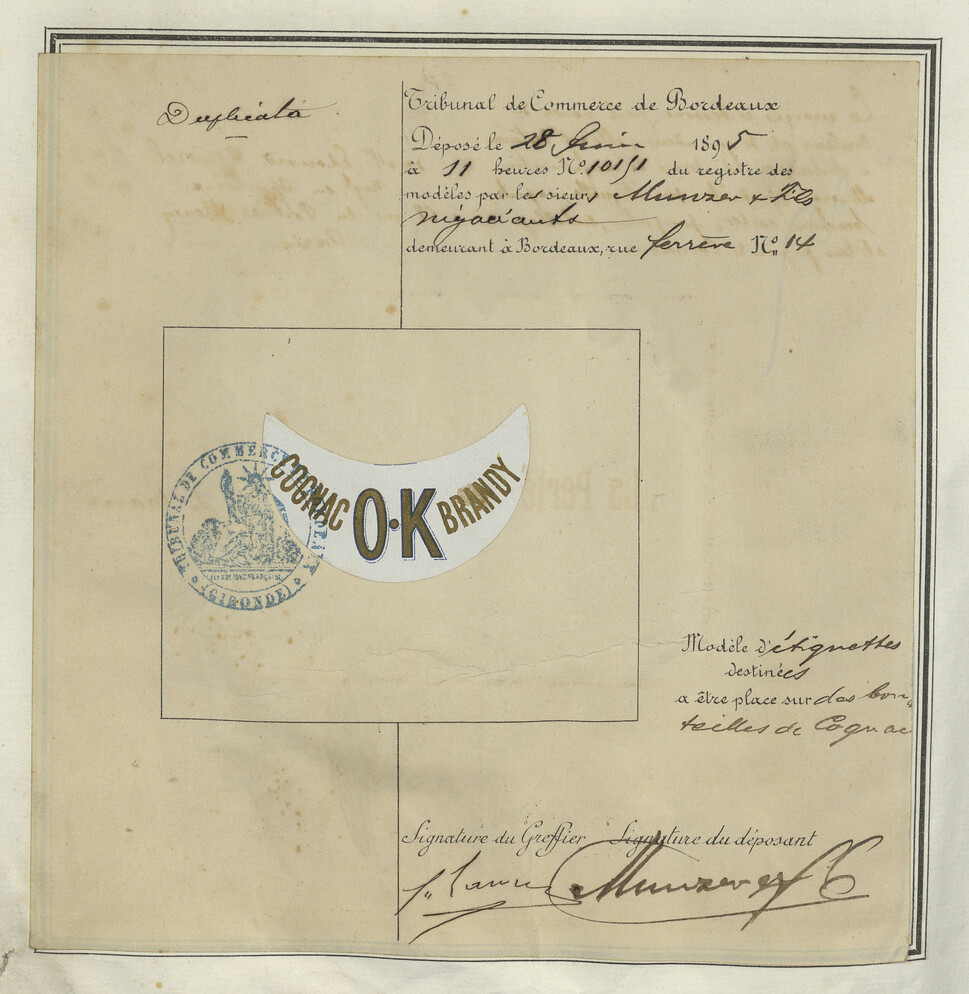 Duplicata
Tribunal de Commerce de Bordeaux
Déposé le 28 Juin 1895
à 11 heures Nº 10151 du registre des
modèles par les sieurs Munzer & Fils
négociants
demeurant à Bordeaux, rue ferrère Nº 14
COGNAC O·K BRANDY
TRIBUNAL DE COMMERCE
(GIRONDE)
Modèle d'étiquettes
destinées
a être place sur des bou„
teilles de Cognac
Signature du Greffier Signature du déposant
Munzer et f